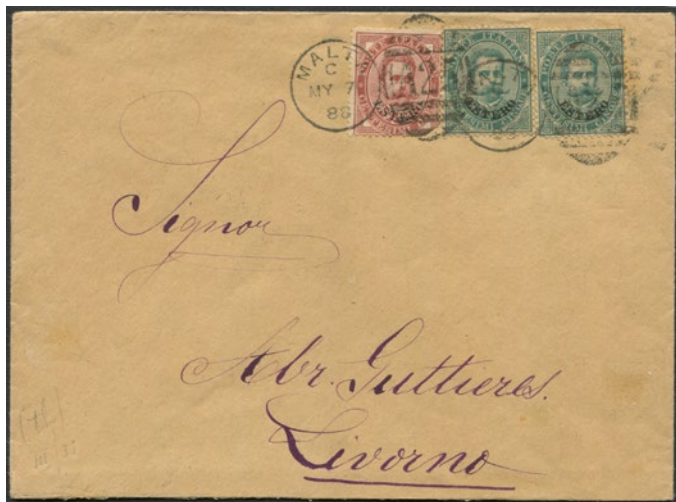 MALT
C
MY 7
88
ESTERO
ESTERO
ESTERO
Signor
Abr. Guttieres.
Livorno